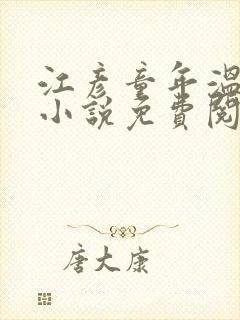 江彦童年温
小說免費閱
唐大康